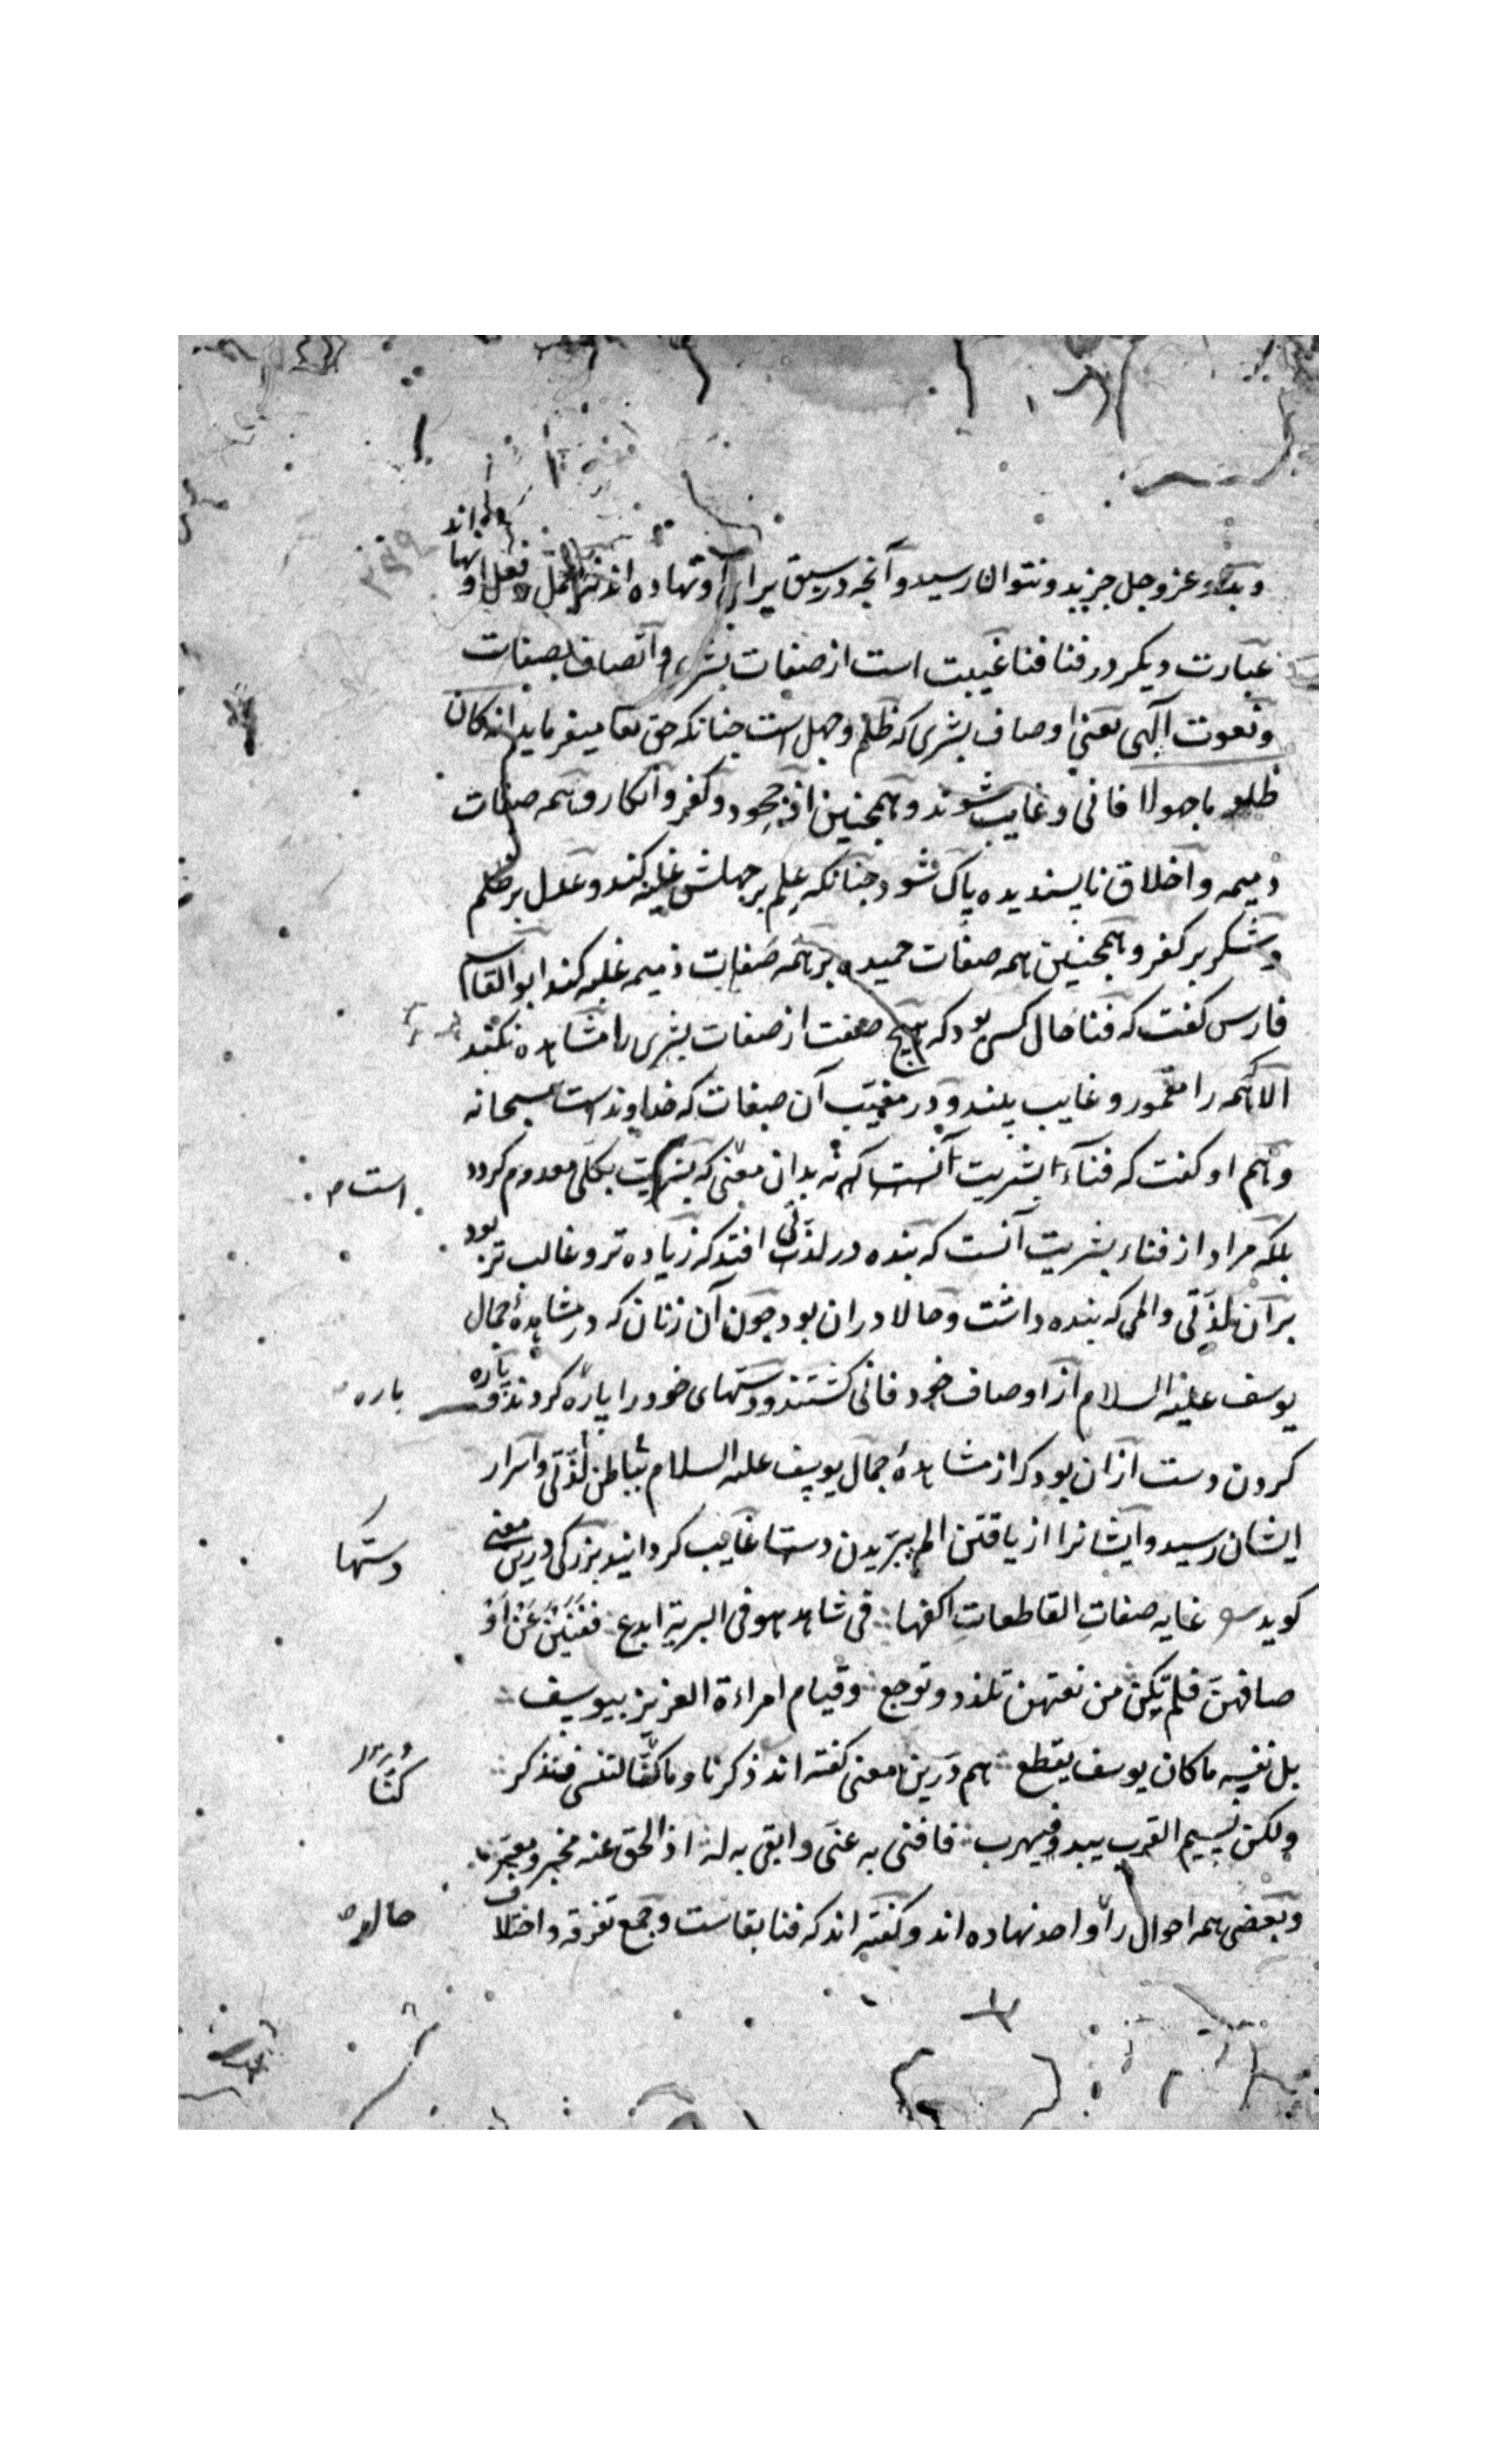 و بدو عز و جل جز بدو نتوان رسید و آنچه در سبق برای او نهاده اند فعل او
عبارت دیکر در فنا فنا غیبت است از صفات بشری و اتصاف بصفات
و نعوت آلهی یعنی اوصاف بشری که ظلم و جهل است جنانکه حق تعا میفرماید انه کان
ظلوما جهولا فانی و غایب شوند و همچنین از جحود و کفر و انکار و همه صفات
ذمیمه و اخلاق ناپسندیده پاک شود جنانکه علم بر جهلش غلبه کند و عدل بر ظلم
و شکر بر کفر و همچنین همه صفات حمیده بر همه صفات ذمیمه غلبه کند ابو القاسم
فارس کفت که فنا حال کسی بود که هیچ صفت از صفات بشری را مشاهده نکند
الا همه را مغمور و غایب بیند و در مغیب آن صفات که خداوندست سبحانه
و هم او کفت که فناء بشریت آنست که نه بدان معنی که بشریت بکلی معدوم کردد
است
بلکه مراد از فناء بشریت آنست که بنده در لذتی افتد که زیاده تر و غالب تر بود
بر آن لذتی و المی که بنده داشت و حالا دران بود جون آن زنان که در مشاهدهٔ جمال
یوسف علیه السلام از اوصاف خود فانی کشتند و دستهای خود را پاره کردند و پاره
باره
کردن دست ازان بود که از مشاهدهٔ جمال یوسف علیه السلام بباطن لذتی و اسرار
ایشان رسید و ایشانرا از یافتن الم ببریدن دستها غایب کردانید بزرکی درین معنی
دستها
کوید غایه صفات القاطعات اکفها فی شاهد هو فی البریة ابدع ففنین عن او
صافهن فلم یکن من نعتهن تلذذ و توجع و قیام امراءة العزیز بیوسف
بل نفسه ما کان یوسف یقطع هم درین معنی کفته اند ذکرنا و ما کنا لننسی فنذکر
کنا
ولکن نسیم القرب یبدو فیبهر فافنی به عنی و ابقی به له اذ الحق عنه مخبر و معبر
و بعضی همه احوال را واحد نهاده اند و کفته اند که فنا بقاست و جمع تفرقه و اختلاف
حال